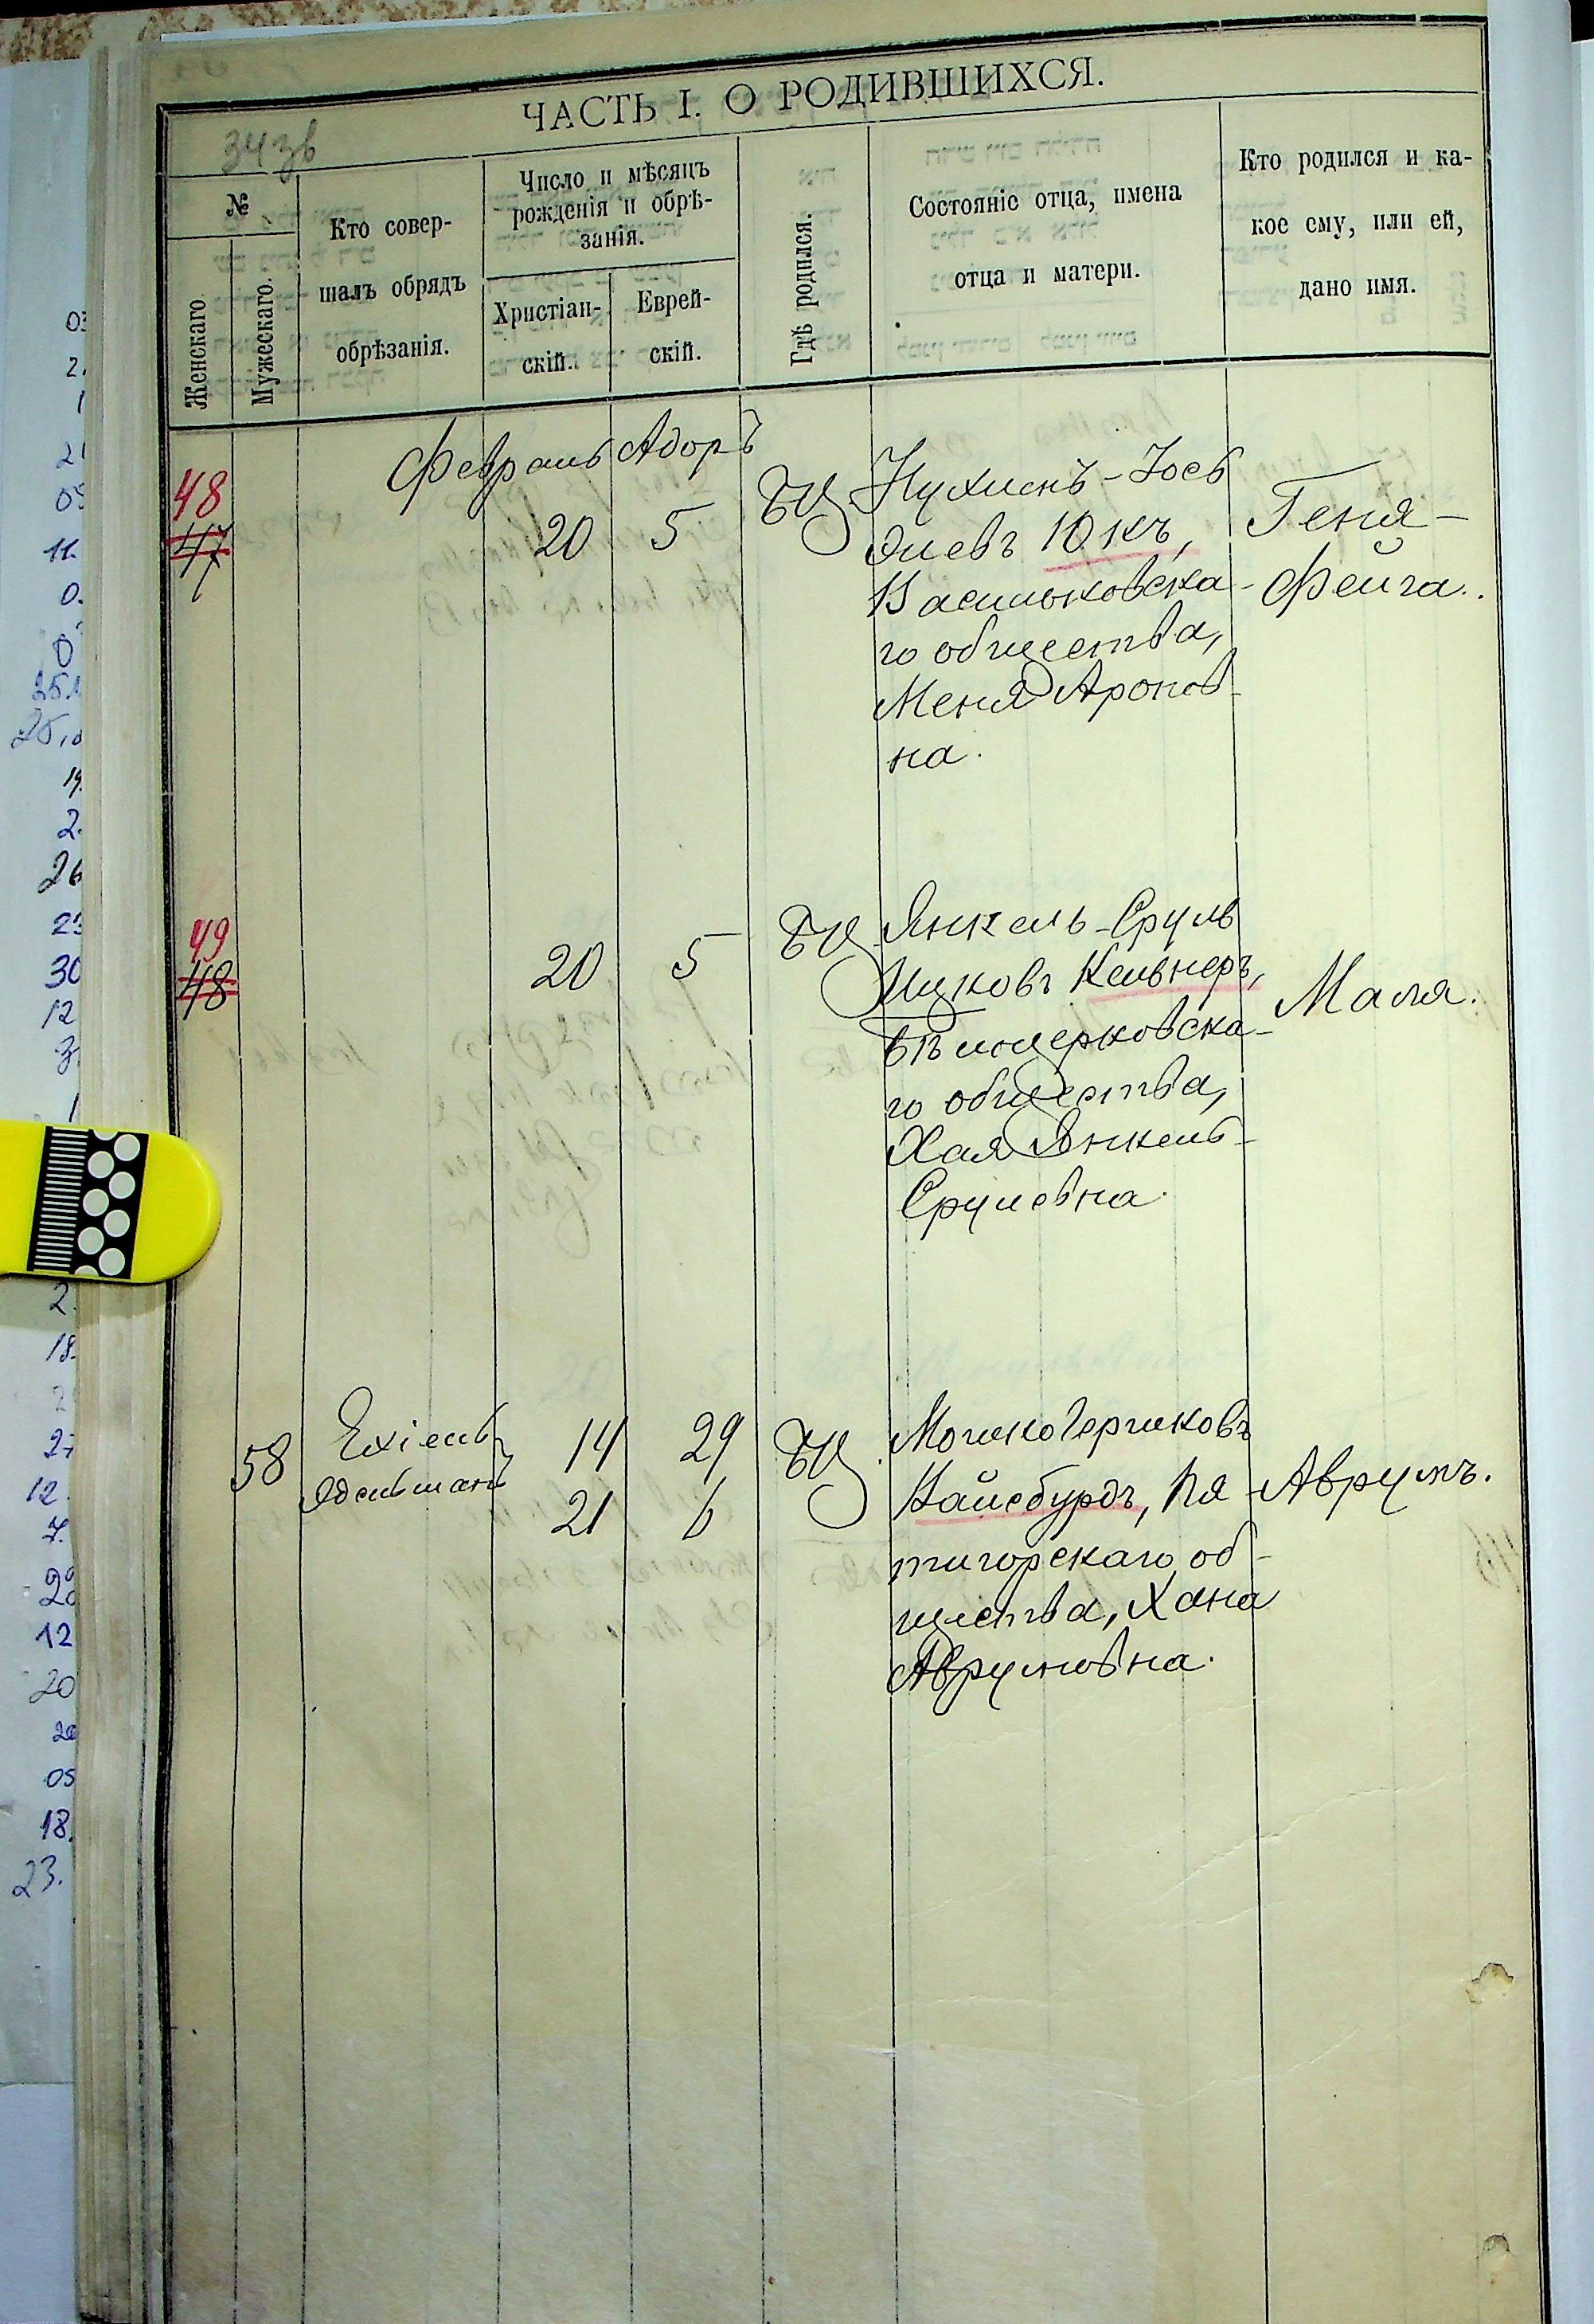 ЧАСТЬ I. О РОДИВШИХСЯ.
34 зв
№
Женскаго
Мужескаго.
Кто совер-
шалъ обрядъ
обрѣзанія.
Число и мѣсяцъ
рожденія и обрѣ-
занія.
Христіан-
скій.
Еврей-
скій.
Гдѣ родился.
Состояніе отца, имена
отца и матери.
Кто родился и ка-
кое ему, или ей,
дано имя.
Февраль Адоръ
48
47
20 5 БЦ
Нухимъ-Іось
10къ,
Васильковска-
го общества,
Меня Аронов-
на.
Геня-
Фейга.
49
48
20 5 БЦ
Янкель-Сруль
Ицковъ Кельнеръ,
Бѣлоцерковска-
го общества,
Хая Янкель-
Срулевна.
Маля.
58
Ехіель
Эдельманъ
14 29 БЦ
21 6
Мошко Гершковъ
Вайсбурдъ, Пя
тигорскаго об-
щества, Хана
Аврумовна.
Аврумъ.